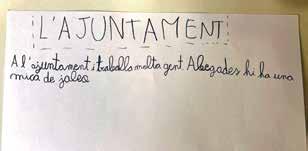 L'AJUNTAMENT
A l'ajuntament i traballa molta gent. Abegades hi ha una
mica de jaleo